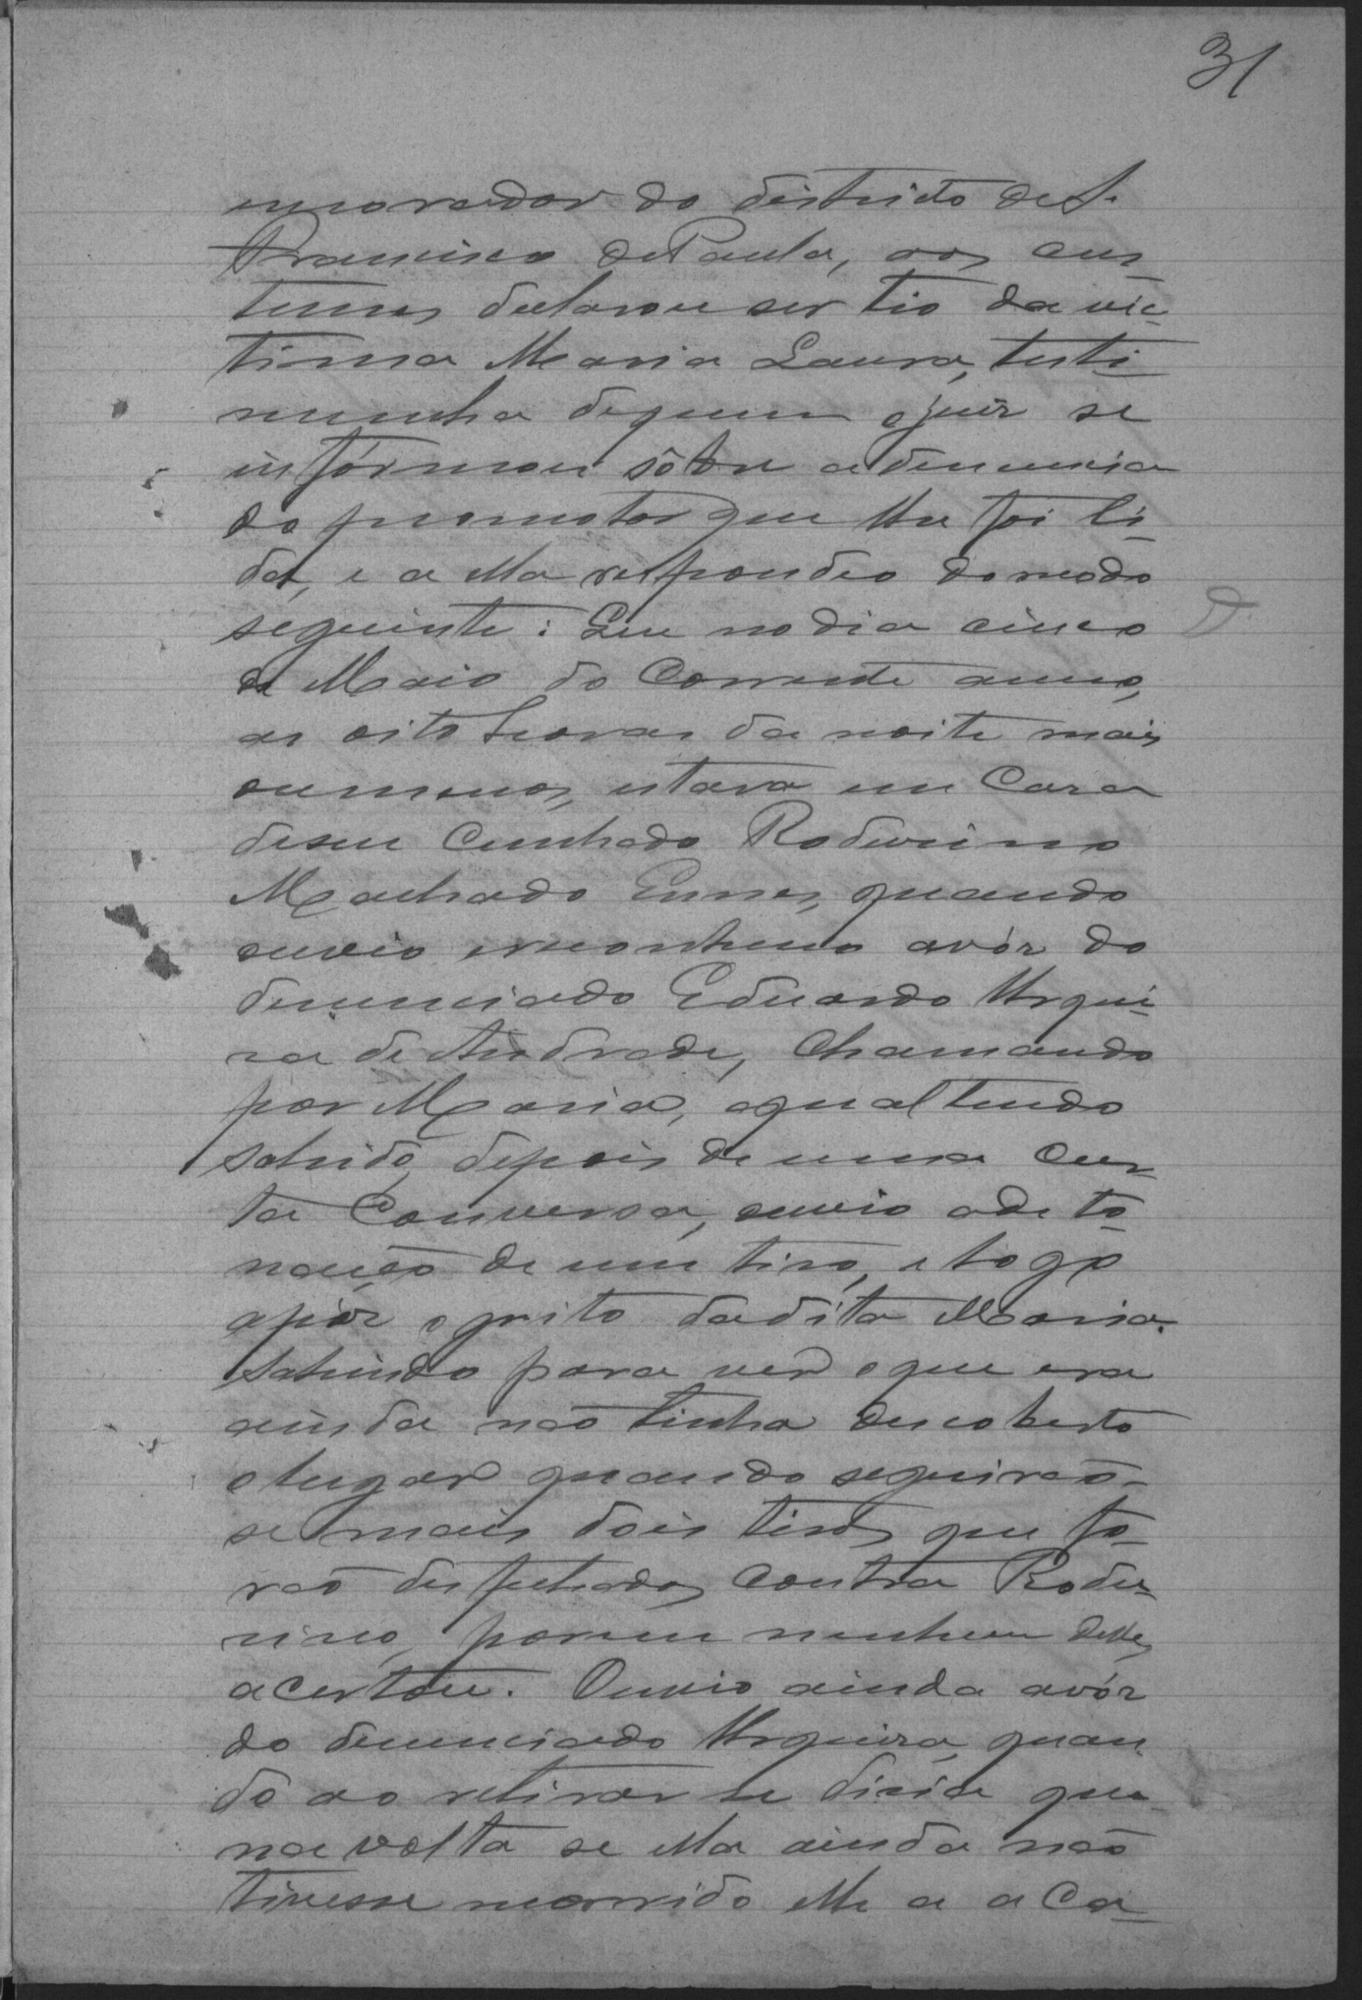 31
morador do districto de S.
Francisco de Paula, aos cus
tumes declarou ser tio da vic-
tima Maria Laura, testi-
munha de quem o juiz se
informou sobre a denuncia
do promotor que lhe foi li-
da, e a ella respondeo do modo
seguinte: Que no dia cinco
de Maio do Corrente anno,
as oito horas da noite mais
ou menos, estava em Casa
de seu Cunhado Roduvino
Machado Ennes, quando
ouvio e reconheceo a vóz do
denunciado Eduardo Urqui-
za de Andrade, Chamando
por Maria, a qual tendo
sahido, depois de uma Cur-
ta Conversa, ouvio a deto-
nação de um tiro, e logo
apóz o grito da dita Maria.
Sahindo para ver o que era
ainda não tinha descoberto
o lugar quando seguirão-
se mais dois tiros que fo-
rão desfechados Contra Rodu-
vino, porem nenhum delles
acertou. Ouvio ainda a vóz
do denunciado Urquiza, quan
do ao retirar se disia que
na volta se ella ainda não
tivesse morrido elle a aca-